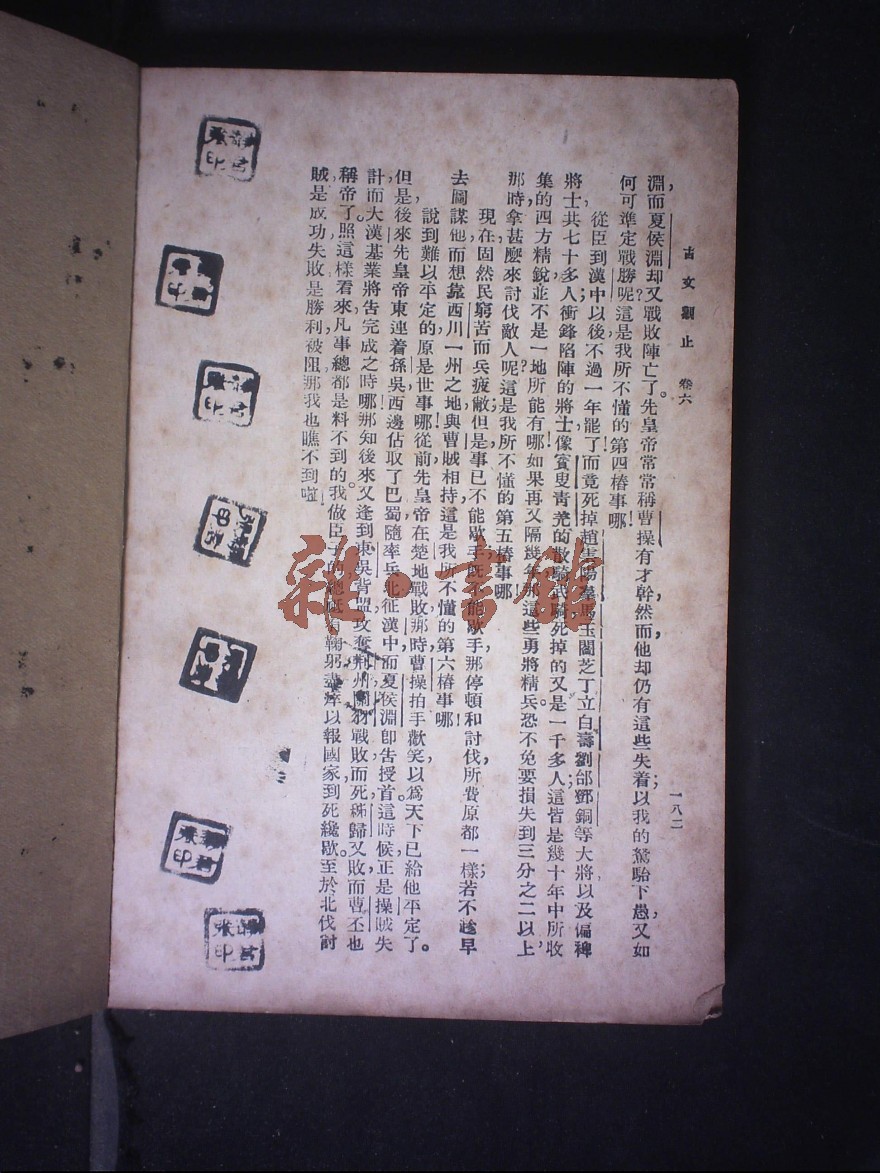 古文觀止 卷六
一八二
淵,而夏侯淵却又戰敗陣亡了。先皇帝常常稱曹操有才幹,然而他却仍有這些失着;以我的駑駘下愚,又如
何可準定戰勝呢?這是我所不懂的第四樁事哪!
從臣到漢中以後,不過一年罷了!而竟死掉趙雲、陽羣、馬玉、閻芝、丁立、白壽、劉郃、鄧銅等大將,以及偏裨
將士共七十多人;衝鋒陷陣的將士,像賓叟、青羌的散騎武騎,死掉的又是一千多人;這皆是幾十年中所收
集的四方精銳,並不是一地所能有哪!如果再又隔幾年,那這些勇將精兵,恐不免要損失到三分之二以上,
那時,拿甚麼來討伐敵人呢?這是我所不懂的第五樁事哪!
現在固然民窮苦而兵疲敝,但是事已不能歇手;既不能歇手,那停頓和討伐,所費原都一樣;若不趁早
去圖謀他,而想靠西川一州之地,與曹賊相持,這是我所不懂的第六樁事哪!
說到難以平定的,原是世事哪!從前先皇帝在楚地戰敗,那時曹操拍手歡笑,以爲天下已給他平定了。
但是,後來先皇帝東連着孫吳,西邊佔取了巴蜀,隨率兵北征漢中,而夏侯淵卽吿授首。這時候,正是操賊失
計,而大漢基業將吿完成之時哪!那知後來又逢到東吳背盟,攻奪荆州,關羽戰敗而死,秭歸又敗,而曹丕也
稱帝了。照這樣看來,凡事總都是料不到的。我做臣子的,總祇有鞠躬盡瘁,以報國家,到死纔歇。至於北伐討
賊,是成功失敗,是勝利被阻,那我也瞧不到啦!
雜·書館